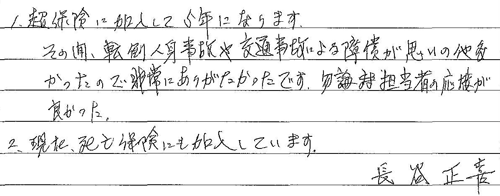 1. 超保険に加入して5年になります。
その間、転倒人身事故や交通事故による障償が思いの他多
かったので非常にありがたかったです。勿論 担当者の応接が
良かった。
2. 現在、死亡保険にも加入しています。
長谷 正喜